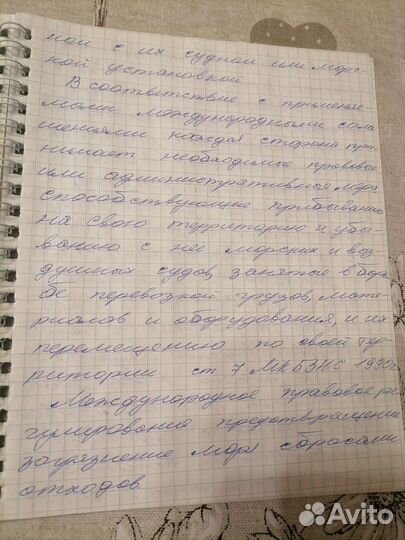 ной с их судном или морс-
кой установкой
В соответствие с применяе-
мыми международными согла
шениями каждая сторона при
нимает необходимые правовые
или административные меры
способствующие прибыванию
на свою территорию и убы-
ванию с неё морских и воз
душных судов, занятые в борь
бе перевозкой грузов, мате-
риалов и оборудования, и их
перемещению по своей тер-
ритории ст 7 МКБЗНС 1990г
Международное правовое ре
гулирование предотвращение
загрязнение моря сбросами
отходов.
Avito